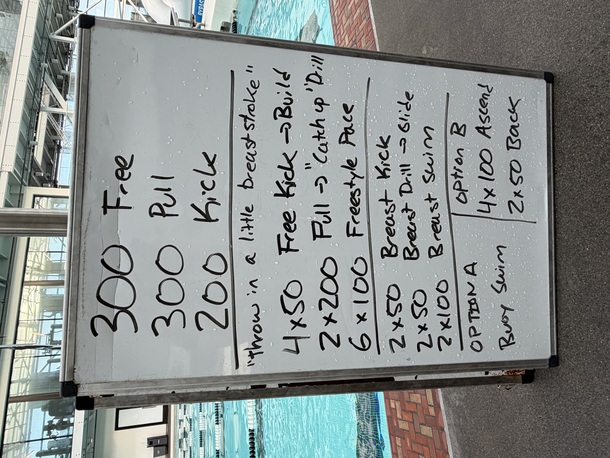 300 Free
300 Pull
200 Kick
"Throw in a little breaststroke"
4x50 Free Kick → Build
2x200 Pull → "Catch up" Drill
6x100 Freestyle Pace
2x50 Breast Kick
2x50 Breast Drill → Glide
2x100 Breast Swim
OPTION A
Buoy Swim
OPTION B
4x100 Ascend
2x50 Back